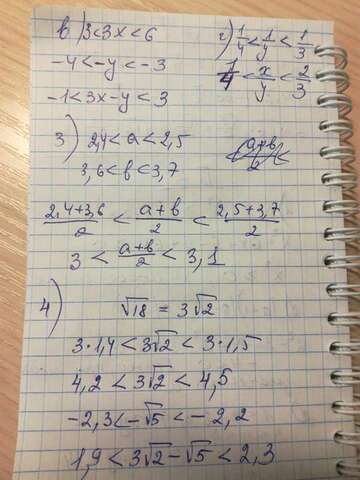 в) 3<3x<6
-4<-y<-3
-1<3x-y<3
г) 1/4<1/y<1/3
1/4<x/y<2/3
3) 2,4<a<2,5
3,6<b<3,7
(2,4+3,6)/2 < (a+b)/2 < (2,5+3,7)/2
3 < (a+b)/2 < 3,1
4) √18 = 3√2
3·1,4<3√2<3·1,5
4,2<3√2<4,5
-2,3<-√5<-2,2
1,9<3√2-√5<2,3